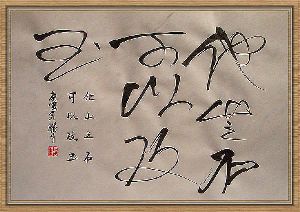 他山之石
可以攻
玉
他山之石
可以攻玉